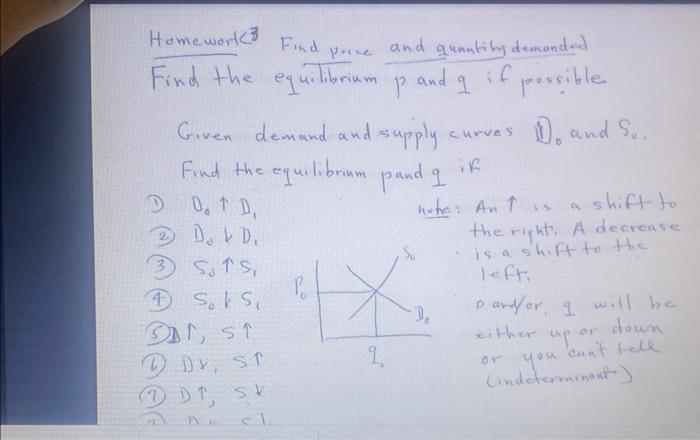 Homework 3 Find price and quantity demanded
Find the equilibrium p and q if possible
Given demand and supply curves D₀ and S₀.
Find the equilibrium p and q if
① D₀ ↑ D₁
② D₀ ↓ D₁
③ S₀ ↑ S₁
④ S₀ ↓ S₁
⑤ D↑, S↑
⑥ D↓, S↑
⑦ D↑, S↓
note: An ↑ is a shift to
the right. A decrease
is a shift to the
left.
p and/or q will be
either up or down
or you can't tell
(indeterminant)
S₀
P₀
D₀
q₀